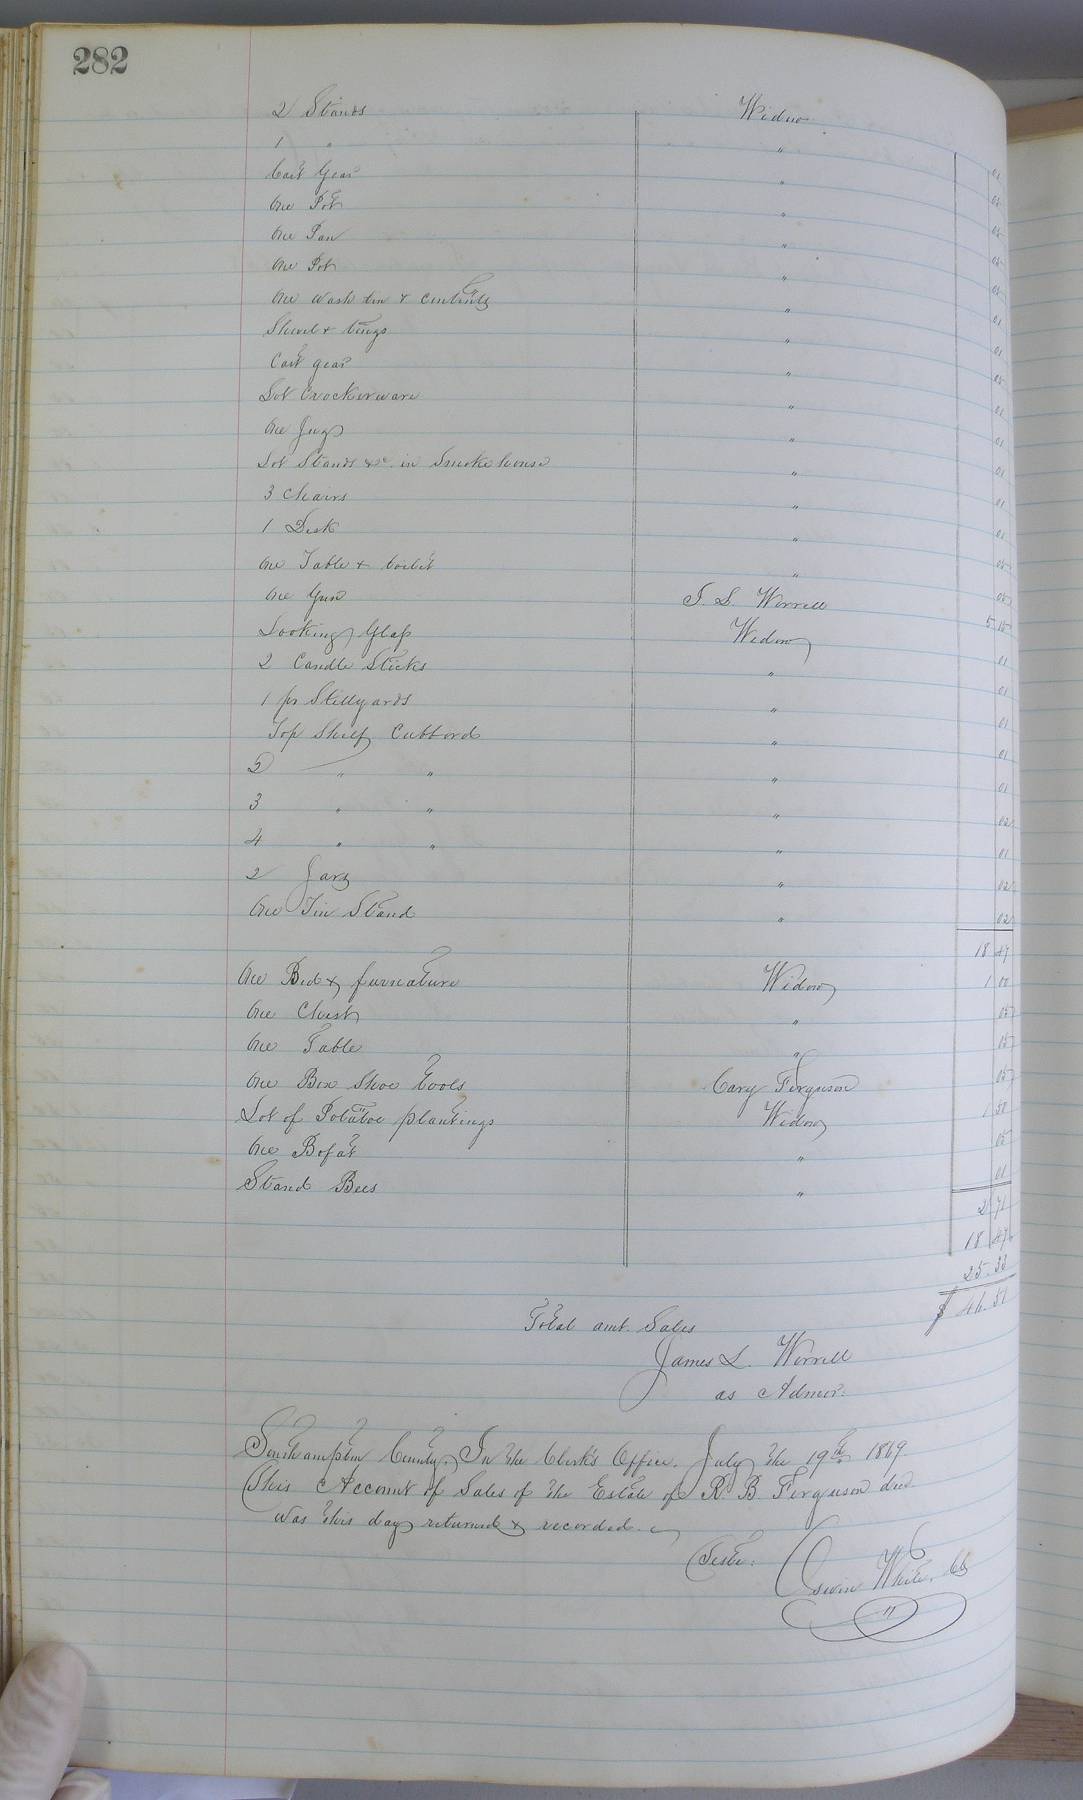 282
2 Stands Widow
1 " "
Cart Gear " 01
One Pot " 05
One Pan " 05
One Pot " 05
One Wash tin & contents " 05
Shovel & tongs " 01
Cart gear " 01
Lot Crockerware " 05
One Jug " 01
Lot Stands &c. in Smoke house " 01
3 Chairs " 01
1 Desk " 01
One Table & " 05
One Gun J. L. Worrell 5 15
Looking Glass Widow 01
2 Candle Sticks " 01
1 pr Stillyards " 01
Top Shelf Cubbord " 01
2 " " " 01
3 " " " 02
4 " " " 01
2 Jars " 02
One Tin Stand " 02
18 47
One Bed & furneature Widow 1 00
One Chest " 05
One Table " 15
One Box Shoe tools Cary Ferguson 05
Lot of Potatoe plantings Widow 1 50
One Bofat " 05
Stand Bees " 01
2 71
18 47
25.33
Total amt. Sales $ 46.51
James L. Worrell
as Admor.
Southampton County, In the Clerk's Office. July the 19th 1869.
This Account of Sales of the Estate of R. B. Ferguson decd.
was this day returned & recorded.
Teste: White, Clk